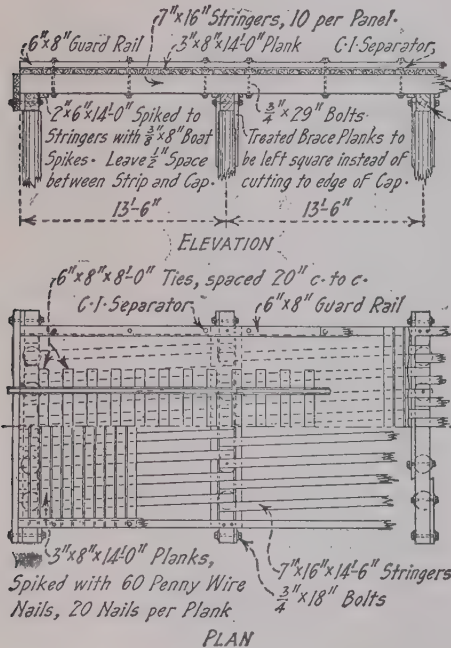 7"×16" Stringers, 10 per Panel.
6"×8" Guard Rail
3"×8"×14'-0" Plank
C·I·Separator
2"×6"×14'-0" Spiked to
Stringers with 3/8"×8" Boat
Spikes. Leave 1/2" Space
between Strip and Cap.
3/4"×29" Bolts
Treated Brace Planks to
be left square instead of
cutting to edge of Cap.
13'-6"
13'-6"
ELEVATION
6"×8"×8'-0" Ties, spaced 20" c. to c.
C·I·Separator
6"×8" Guard Rail
3"×8"×14'-0" Planks,
Spiked with 60 Penny Wire
Nails, 20 Nails per Plank
7"×16"×14'-6" Stringers
3/4"×18" Bolts
PLAN